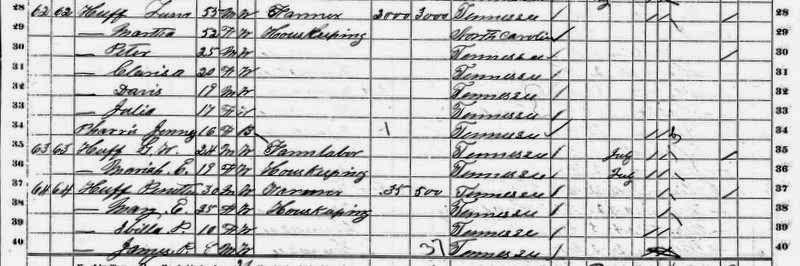 28 62 62 Huff 53 M W Farmer 2000 3000 Tennessee / 28
29 — Martha 52 F W Houskeeping North Carolin / 29
30 — Peter 25 M W Tennessee / 30
31 — Clarisa 20 F W Tennessee / 31
32 — Davis 19 M W Tennessee / 32
33 — Julia 17 F W Tennessee / 33
34 Pharris Jenney 16 F B Tennessee / 34
35 63 63 Huff W. 24 M W Farmlabor Tennessee / July 35
36 — Mariah E. 19 F W Houskeeping Tennessee / July 36
37 64 64 Huff 30 M W Farmer 35 500 Tennessee / 37
38 — Mary E. 25 F W Houskeeping Tennessee / 38
39 — 10 F W Tennessee / 39
40 — James M W 37 Tennessee / 40